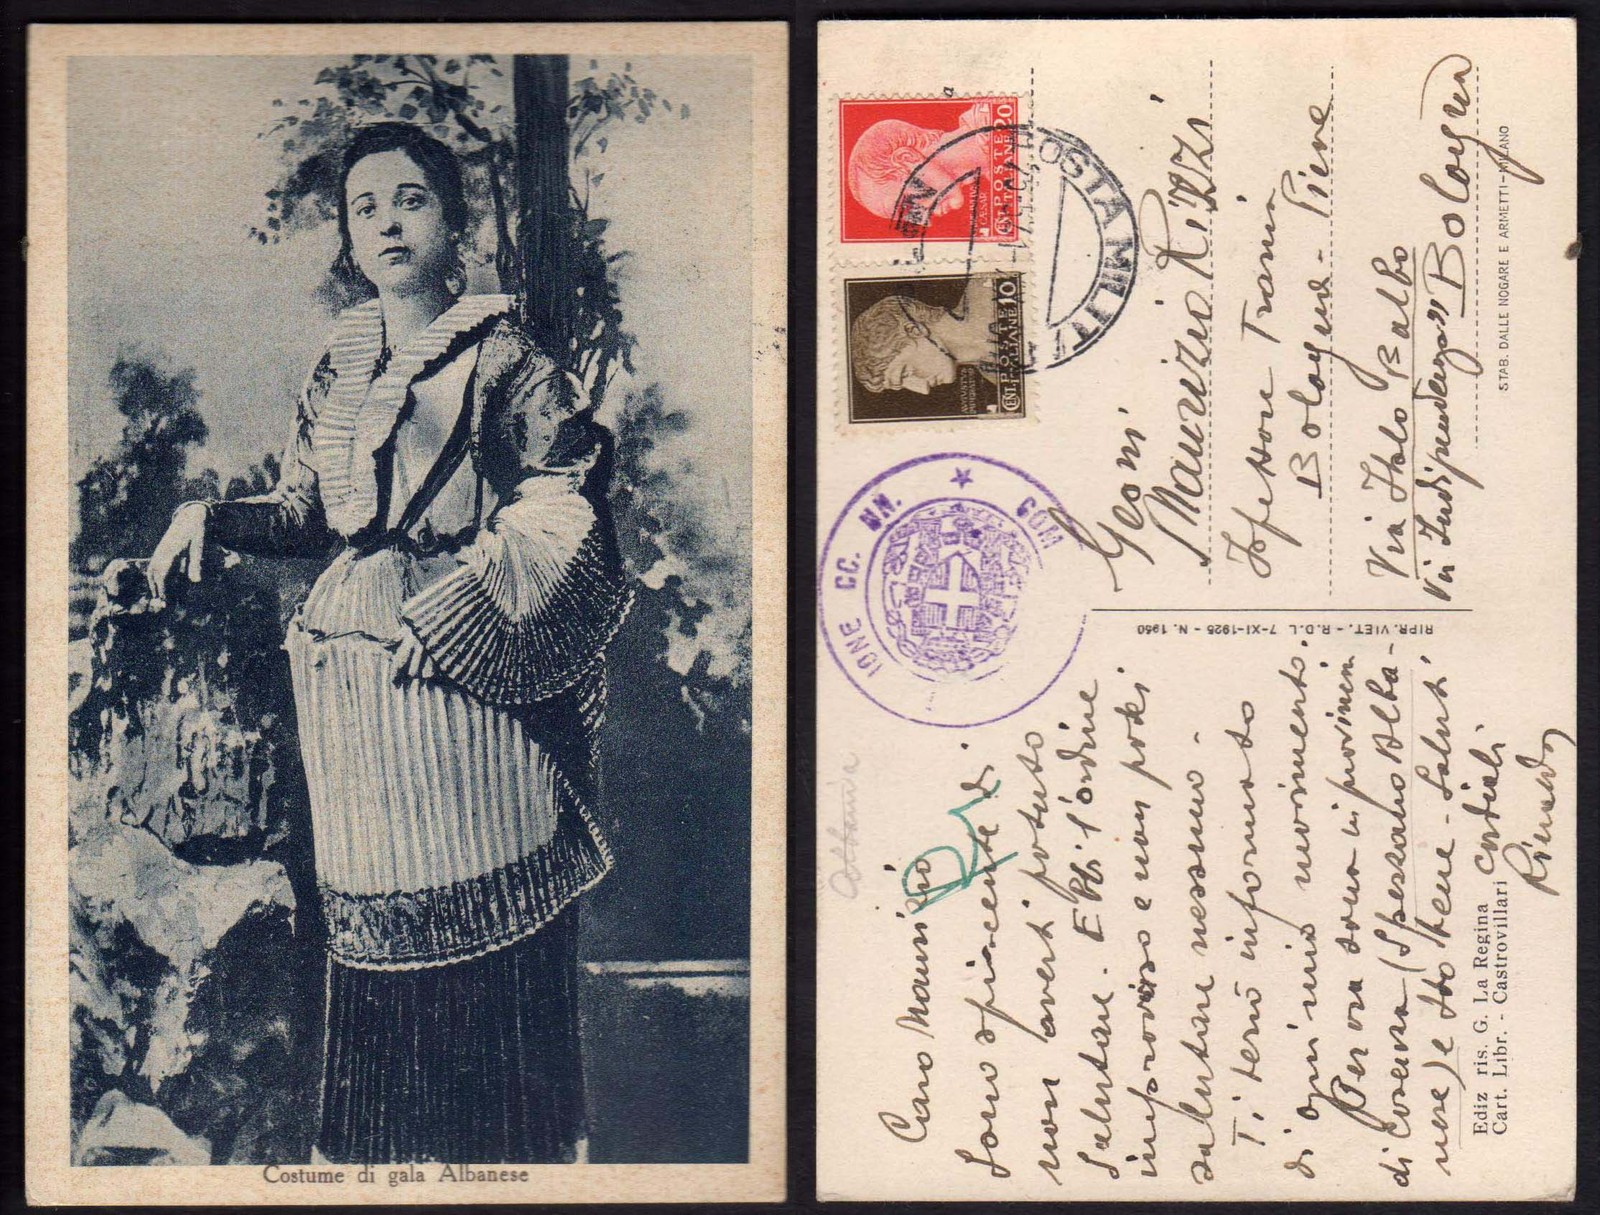 Costume di gala Albanese
Caro Maurizio
Sono spiacente di
non averti potuto
salutare. Ebbi l'ordine
improvviso e non potei
salutare nessuno -
Ti terrò informato
di ogni mio movimento.
Per ora sono in provincia
di Cosenza (Spezzano Alba-
nese) e sto bene - Saluti
cordiali
Ediz ris. G. La Regina
Cart. Libr. - Castrovillari
Albania
RIPR. VIET. - R.D.L. 7-XI-1925 - N. 1950
IONE CC. NN. COM
POSTE ITALIANE
CENT. 20
IVLIVS CAESAR
POSTE ITALIANE
CENT. 10
AVGVSTVS
POSTA MILIT
N
Geom
Maurizio Rizzi
Ispettore
Bologna - Pieve
Via Italo Balbo
Via Indipendenza" Bologna
STAB. DALLE NOGARE E ARMETTI - MILANO